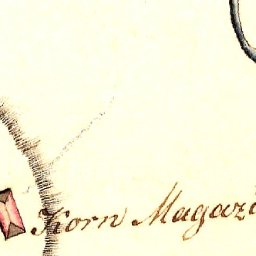 Korn Magazi